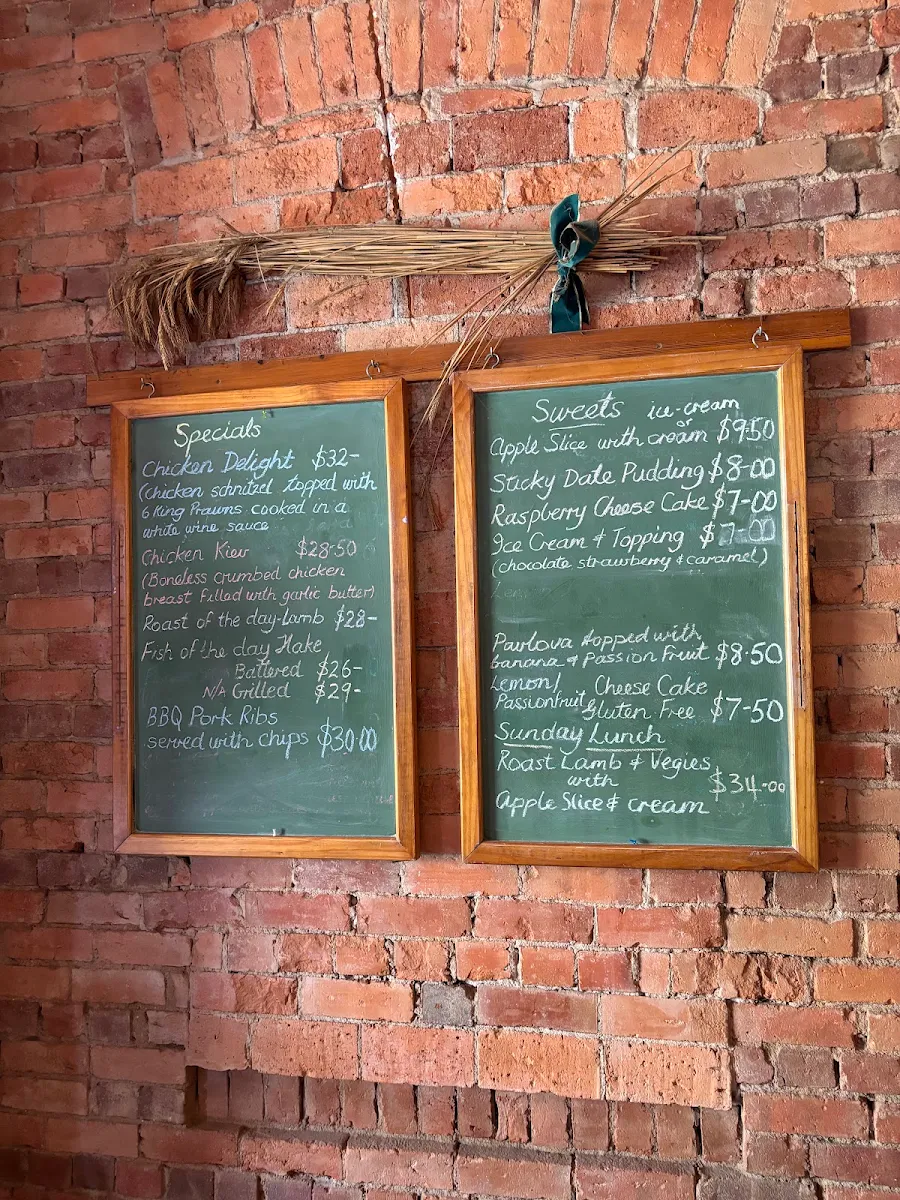 Specials
Chicken Delight $32-
(chicken schnitzel topped with
6 King Prawns cooked in a
white wine sauce
Chicken Kiev $28-50
(Boneless crumbed chicken
breast filled with garlic butter)
Roast of the day-lamb $28-
Fish of the day Hake
Battered $26-
N/A Grilled $29-
BBQ Pork Ribs
served with chips $30.00
Sweets ice-cream
or
Apple Slice with cream $9.50
Sticky Date Pudding $8-00
Raspberry Cheese Cake $7-00
Ice Cream & Topping $7-00
(chocolate strawberry & caramel)
Pavlova topped with
banana & Passion Fruit $8.50
Lemon/ Cheese Cake
Passionfruit Gluten Free $7-50
Sunday Lunch
Roast Lamb & Vegies
with $34-00
Apple Slice & cream